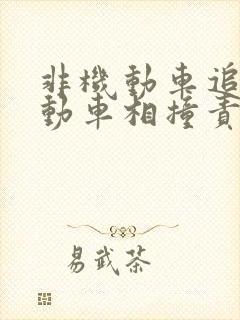 非機動車追
動車相撞責
易武茶